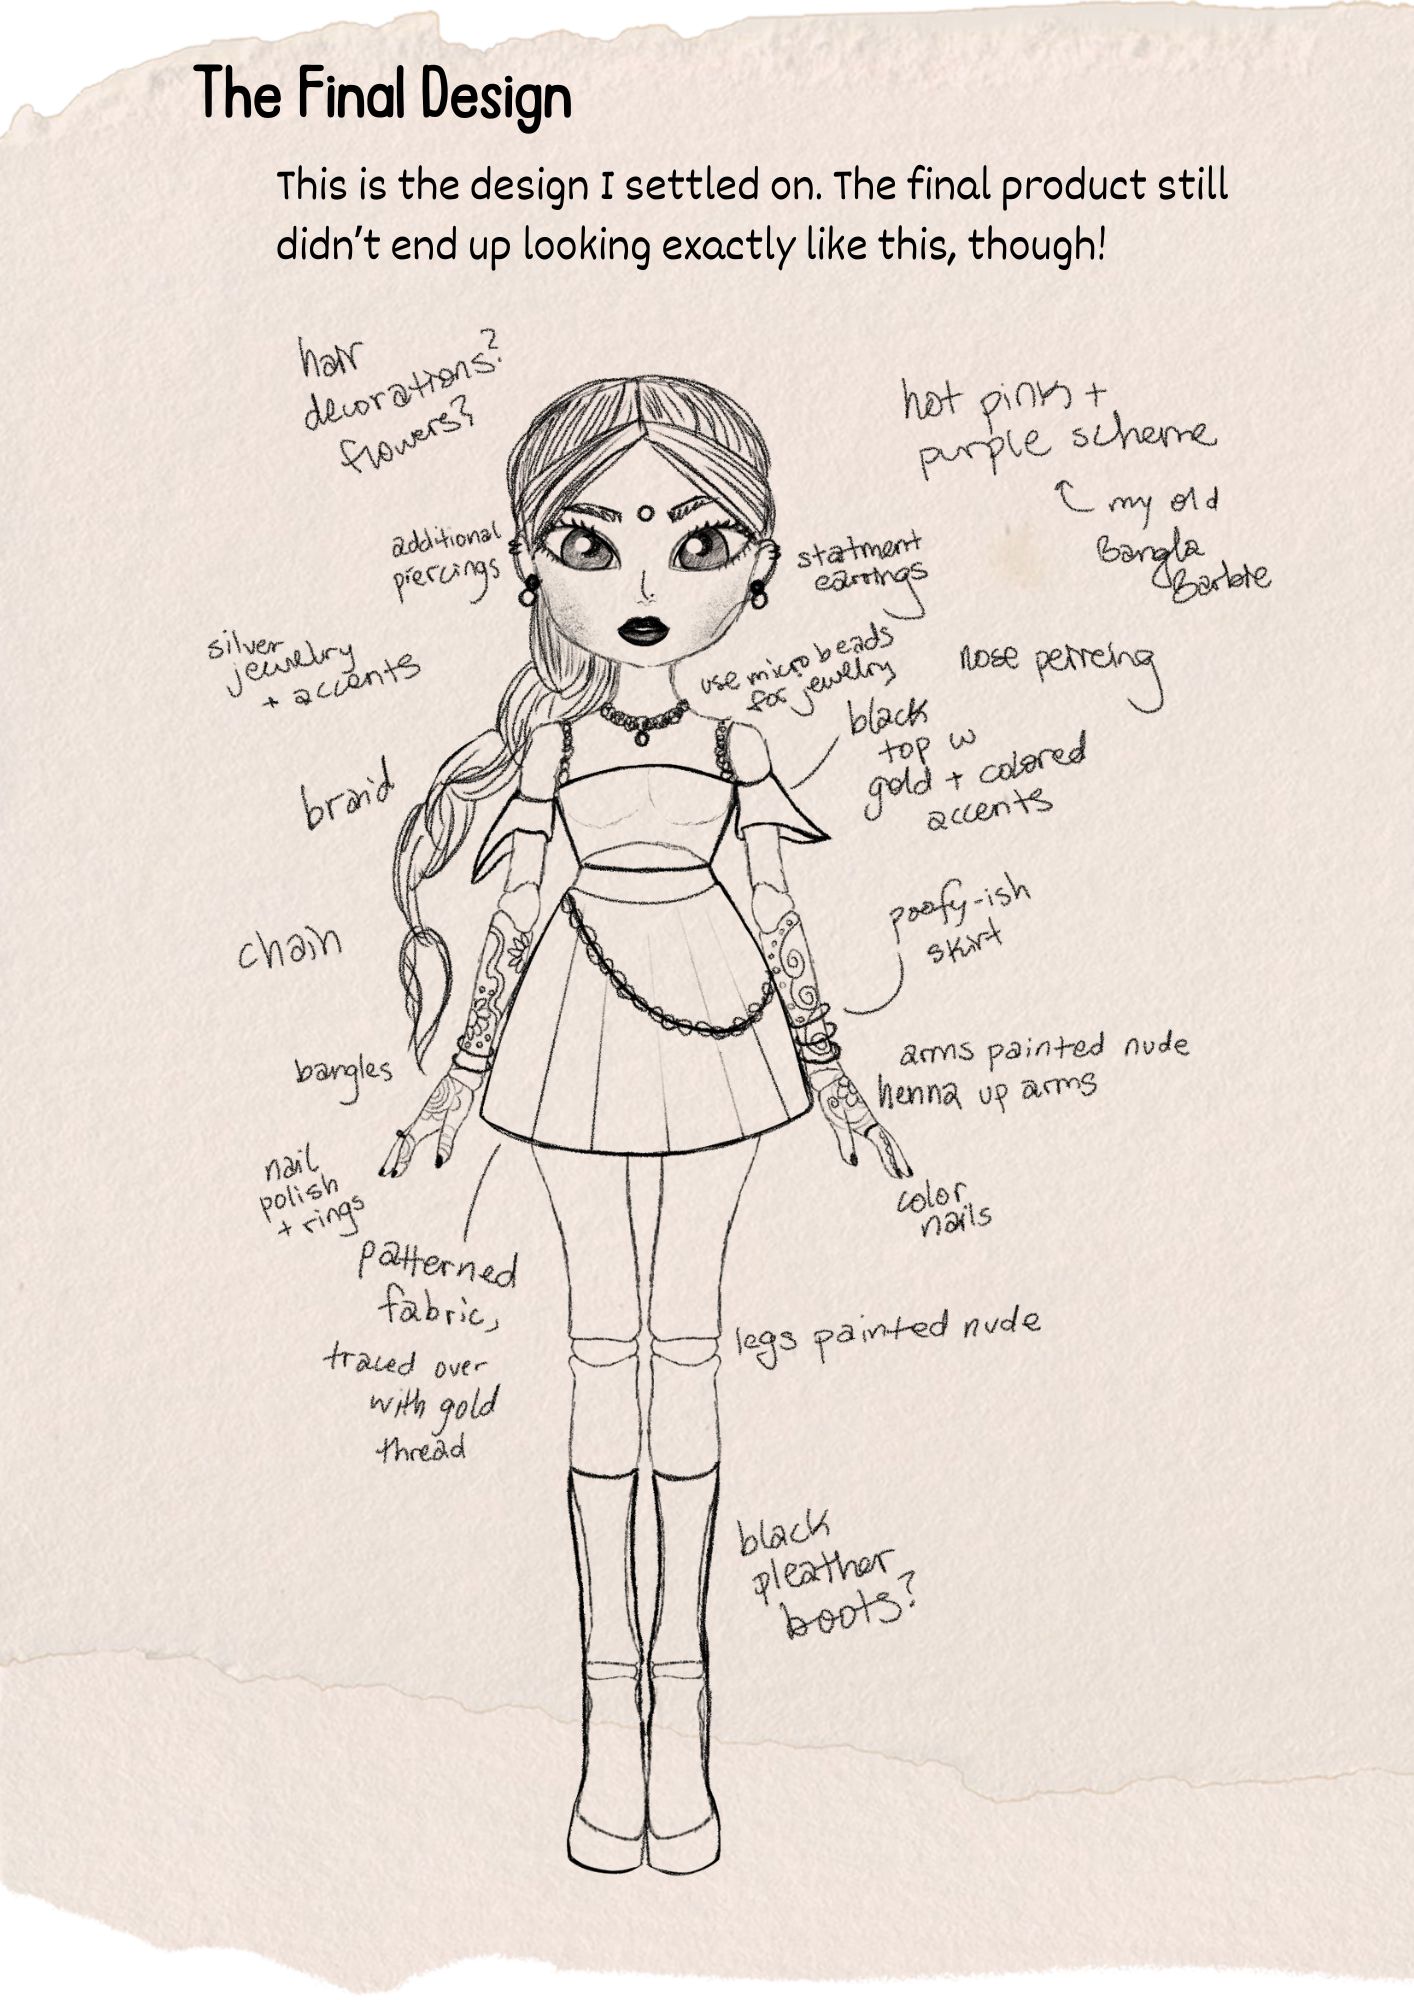 The Final Design
This is the design I settled on. The final product still
didn't end up looking exactly like this, though!
hair
decorations?
flowers?
hot pink +
purple scheme
my old
Bangla
Barbie
additional
piercings
statment
earrings
silver
jewelry
+ accents
use micro beads
for jewelry
nose peircing
black
top w
gold + colored
accents
braid
poofy-ish
skirt
chain
bangles
arms painted nude
henna up arms
nail
polish
+ rings
color
nails
patterned
fabric,
traced over
with gold
thread
legs painted nude
black
pleather
boots?